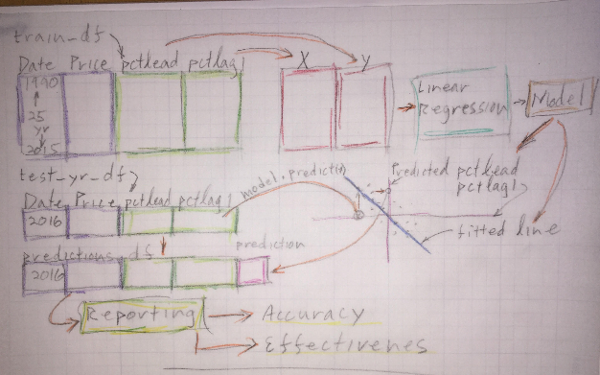 train_df
Date Price pctlead pctlag1
X Y
1990
25
yr
2015
Linear
Regression
Model
test_yr_df
Date Price pctlead pctlag1
2016
model.predict()
Predicted pctlead
pctlag1
fitted line
predictions_df
prediction
2016
Reporting
Accuracy
Effectivenes